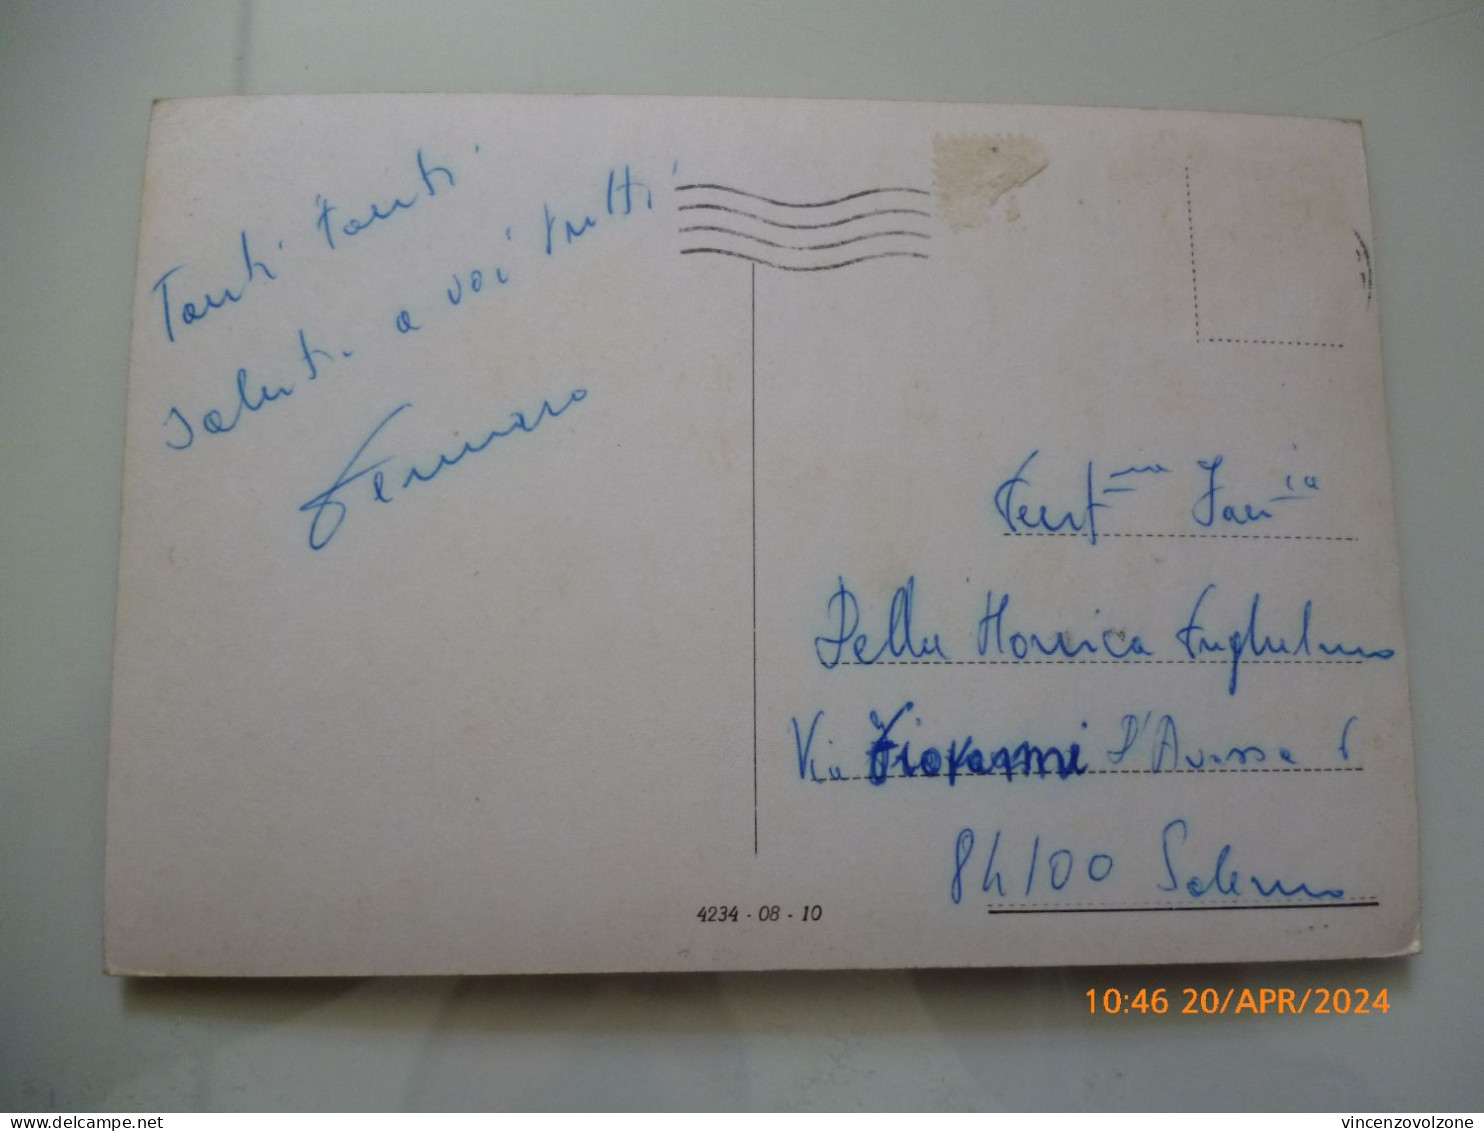 Tanti tanti
saluti a voi tutti
Gennaro
Gent.ma Fam.ia
Della Monica Guglielmo
Via Giovanni D'Avossa 6
84100 Salerno
4234 - 08 - 10
10:46 20/APR/2024
vincenzovolzone